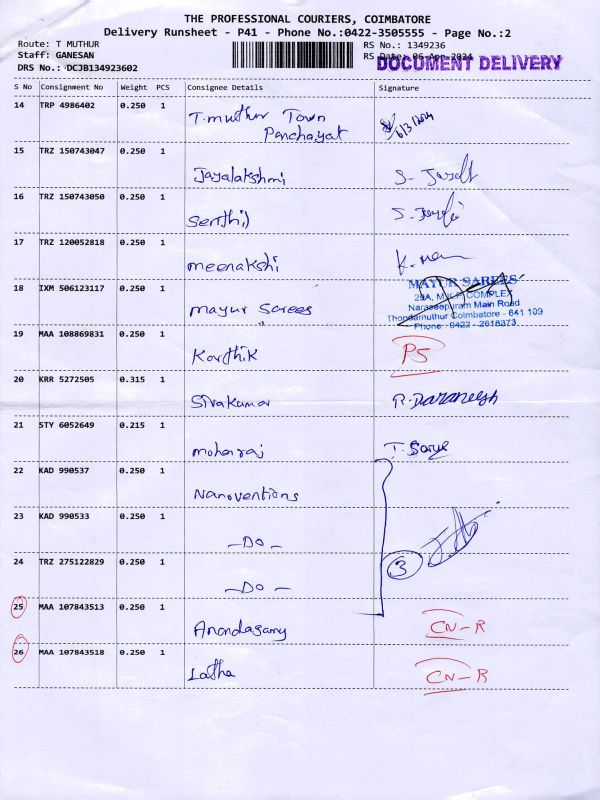 THE PROFESSIONAL COURIERS, COIMBATORE
Delivery Runsheet - P41 - Phone No.:0422-3505555 - Page No.:2
Route: T MUTHUR
RS No.: 1349236
Staff: GANESAN
RS Date: 06-Apr-2024
DRS No.: DCJB134923602
DOCUMENT DELIVERY
S No Consignment No Weight PCS Consignee Details Signature
14 TRP 4986402 0.250 1 T.muthur Town
Panchayat 6/3/2024
15 TRZ 150743047 0.250 1
Jayalakshmi
16 TRZ 150743050 0.250 1
Senthil
17 TRZ 120052818 0.250 1
meenakshi
18 IXM 506123117 0.250 1
mayur Sarees
MAYUR SAREES
29A, M.K.P. COMPLEX
Naraseepuram Main Road
Thondamuthur Coimbatore - 641 109
Phone : 0422 - 2618373
19 MAA 108869831 0.250 1
Karthik PS
20 KRR 5272505 0.315 1
Sivakumar R. Daraneesh
21 STY 6052649 0.215 1
mohanraj
22 KAD 990537 0.250 1
Nanoventions
23 KAD 990533 0.250 1
- Do -
24 TRZ 275122829 0.250 1
- Do - 3
25 MAA 107843513 0.250 1
Anandasamy CN-R
26 MAA 107843518 0.250 1
Latha CN-R